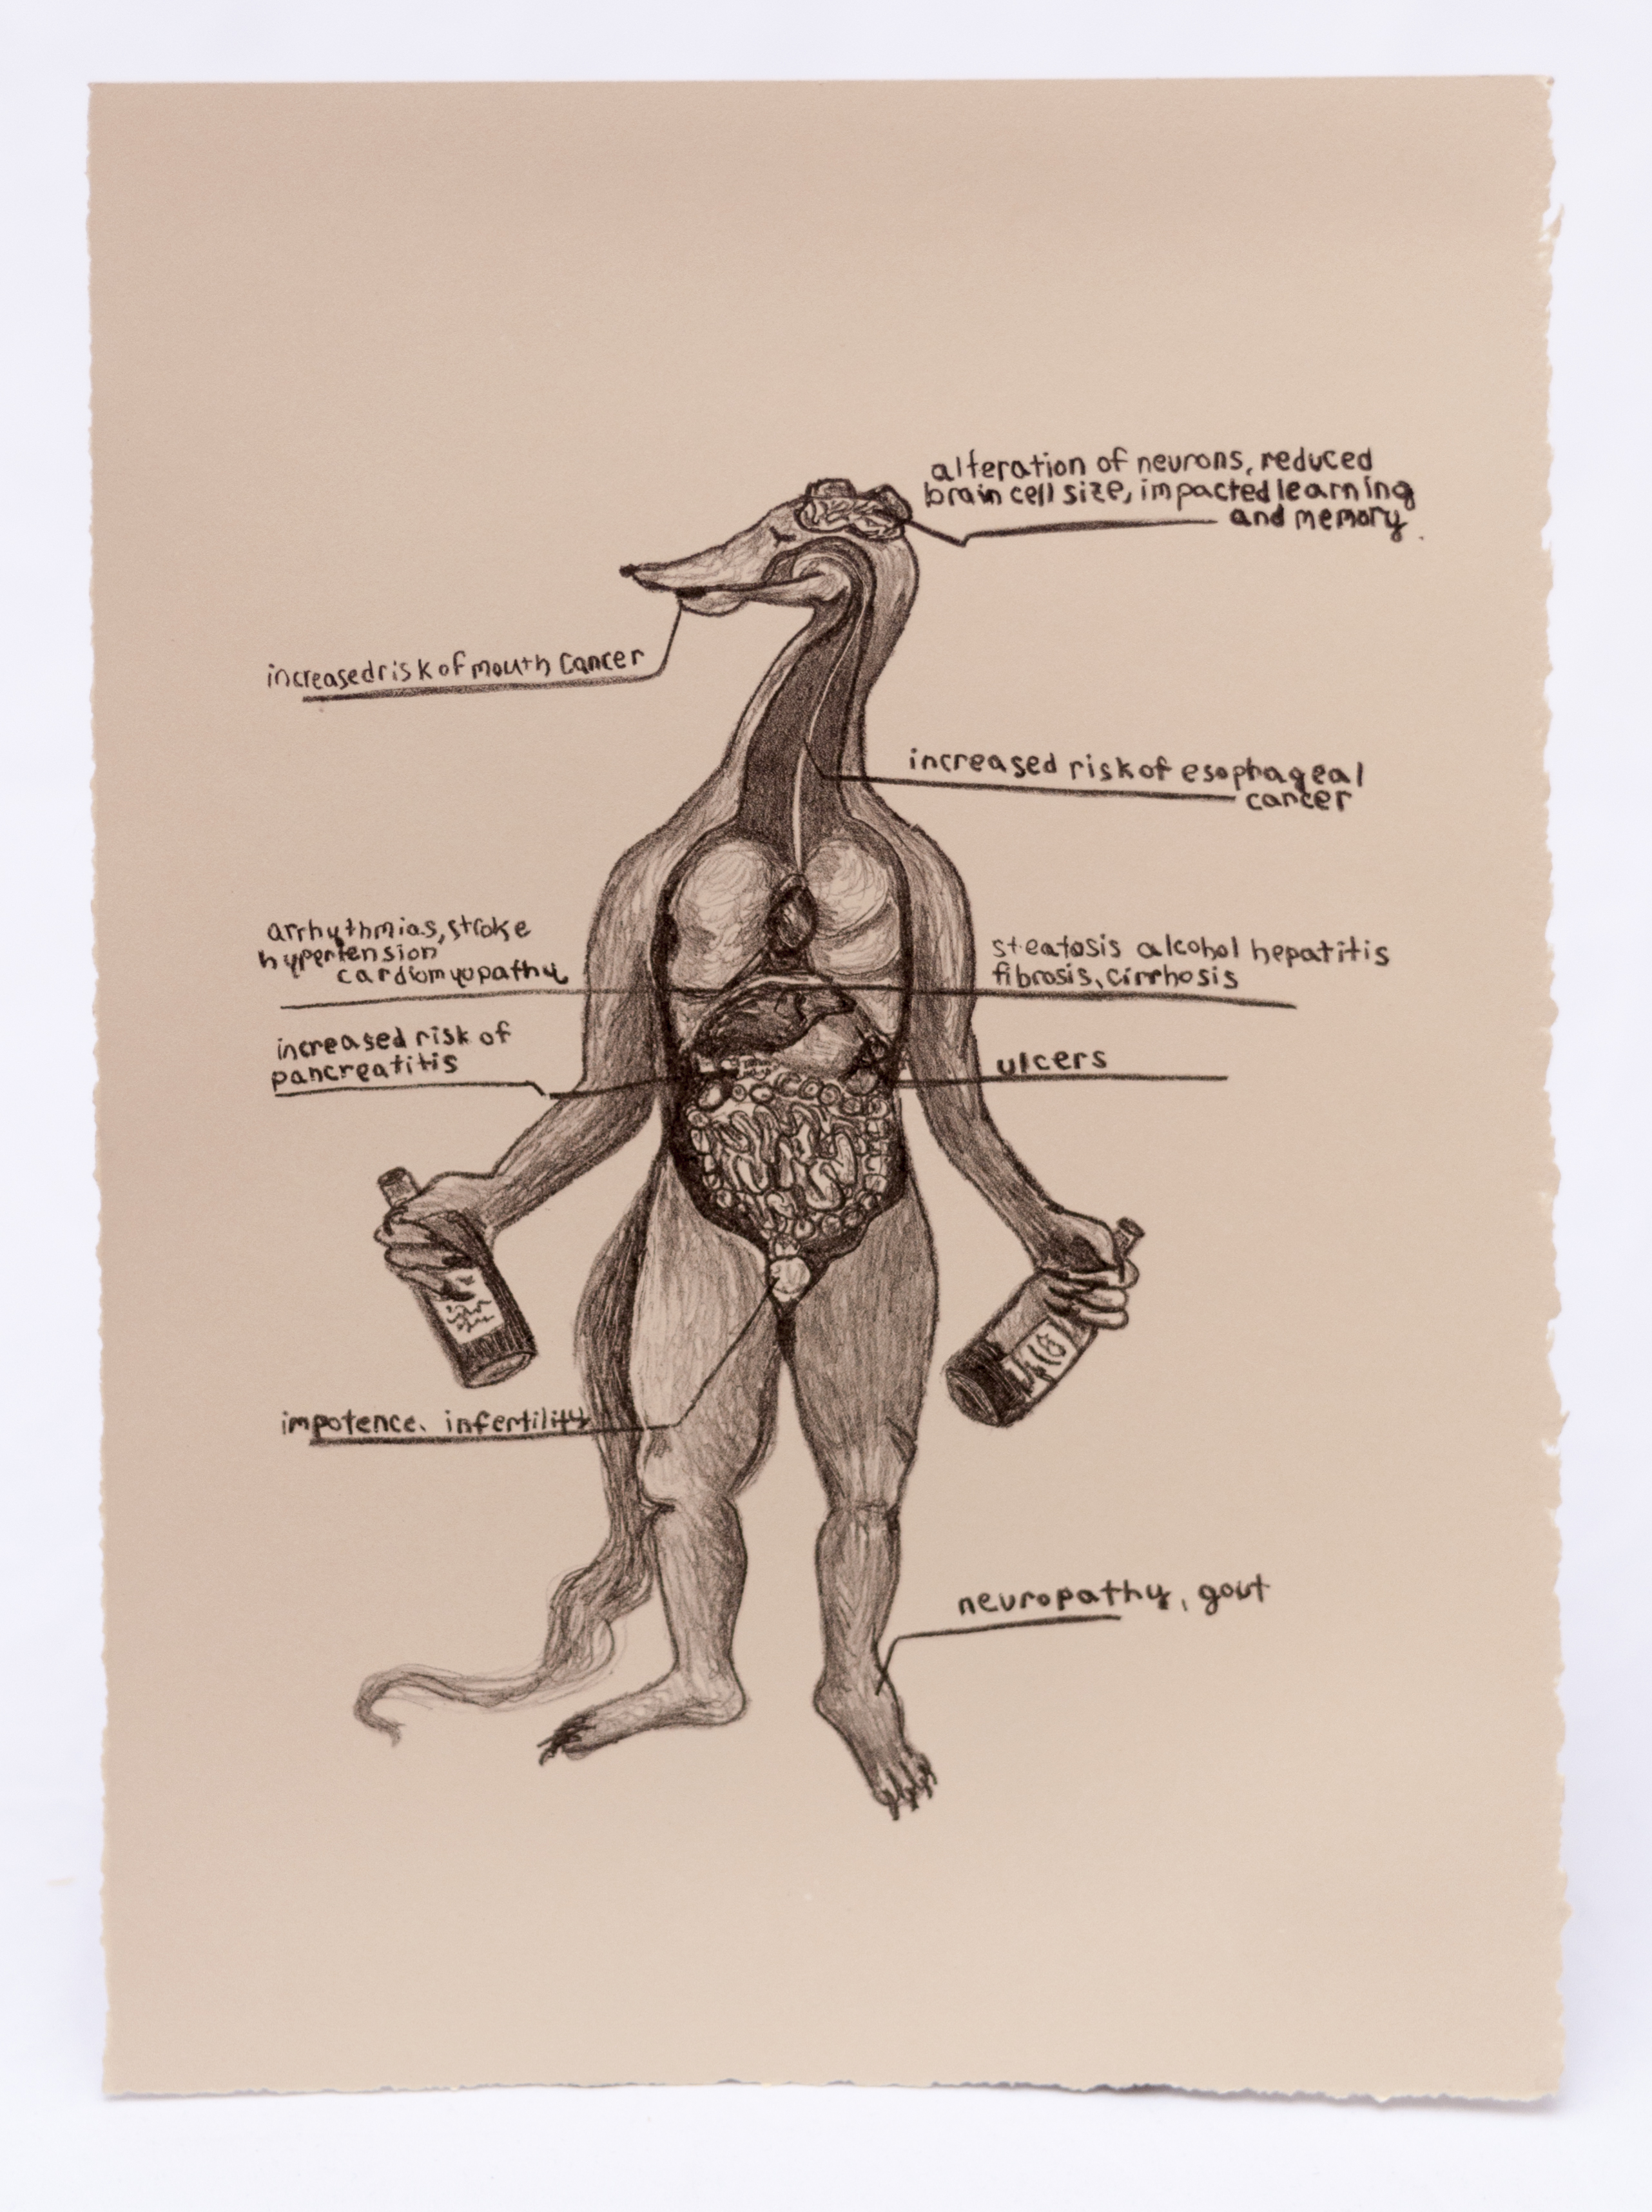 alteration of neurons, reduced
brain cell size, impacted learning
and memory.
increased risk of mouth cancer
increased risk of esophageal
cancer
arrhythmias, stroke
hypertension
cardiomyopathy
steatosis alcohol hepatitis
fibrosis, cirrhosis
increased risk of
pancreatitis
ulcers
impotence. infertility
neuropathy, gout